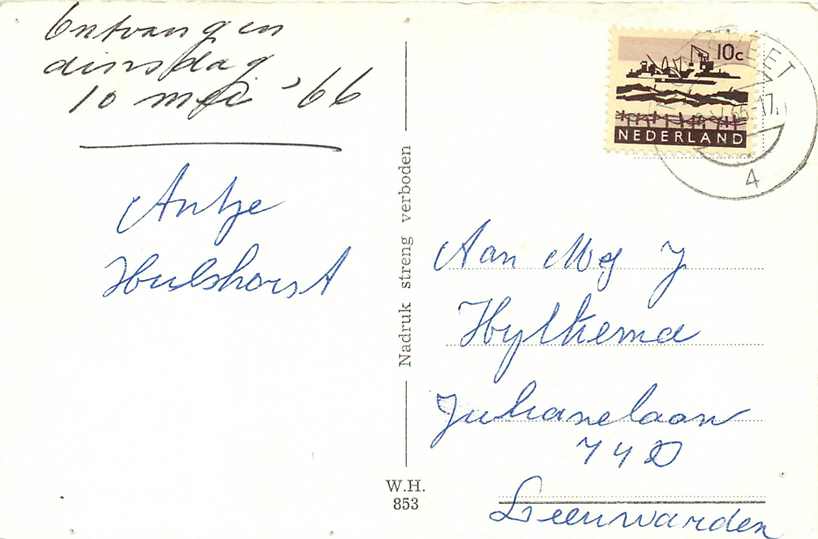 Ontvangen
dinsdag
10 mei '66
Antje
Hulshorst
Nadruk streng verboden
W.H.
853
10c
NEDERLAND
4
Aan Mej J
Hylkema
Julianalaan
Leeuwarden